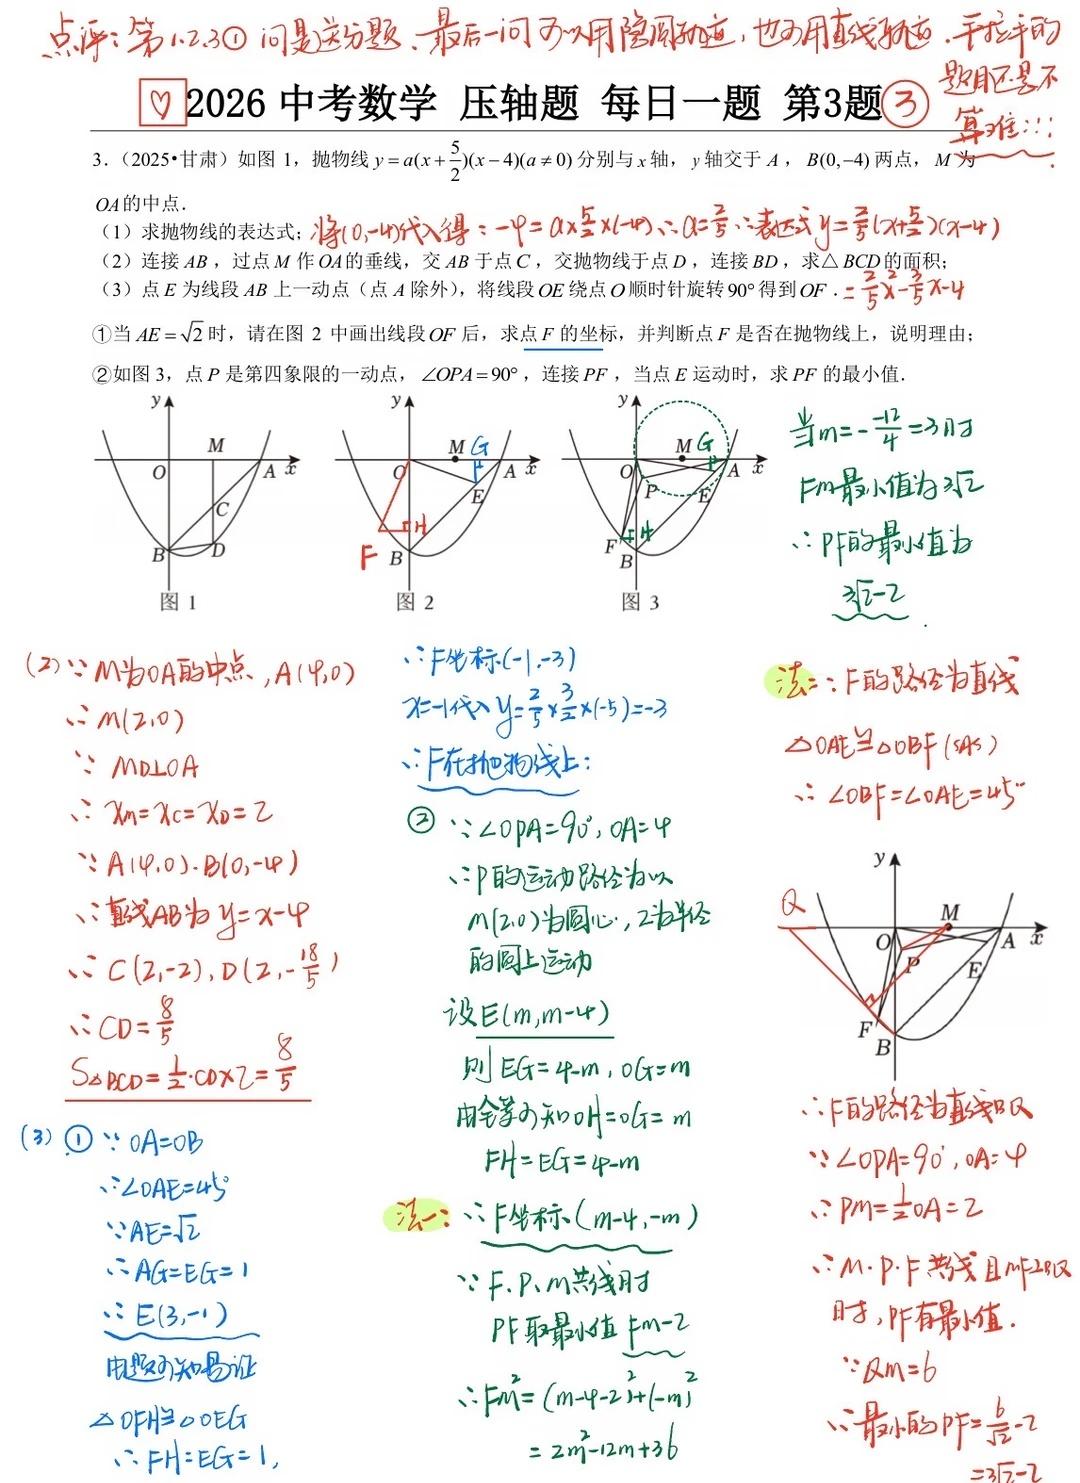 点评:第1.2.3① 问是送分题、最后一问可以用隐圆轨迹,也可用直线轨迹.手拉手的
题目还是不
算难!!!
♡ 2026 中考数学 压轴题 每日一题 第3题 ③
3.(2025•甘肃)如图 1,抛物线 y=a(x+5/2)(x-4)(a≠0) 分别与 x 轴,y 轴交于 A,B(0,-4) 两点,M 为
OA 的中点.
(1)求抛物线的表达式; 将(0,-4)代入得:-4=a×5/2×(-4)∴a=2/5∴表达式y=2/5(x+5/2)(x-4)
(2)连接 AB,过点 M 作 OA 的垂线,交 AB 于点 C,交抛物线于点 D,连接 BD,求△BCD 的面积;
(3)点 E 为线段 AB 上一动点(点 A 除外),将线段 OE 绕点 O 顺时针旋转 90° 得到 OF. =2/5x²-3/5x-4
①当 AE=√2 时,请在图 2 中画出线段 OF 后,求点 F 的坐标,并判断点 F 是否在抛物线上,说明理由;
②如图 3,点 P 是第四象限的一动点,∠OPA=90°,连接 PF,当点 E 运动时,求 PF 的最小值.
y M O A x C B D 图 1
y M G O A x E H F B 图 2
y M G O A x P E F H B 图 3
当m=-(-12)/4=3时
FM最小值为3√2
∴PF的最小值为
3√2-2
(2)∵M为OA的中点,A(4,0)
∴M(2,0)
∵MD⊥OA
∴xM=xC=xD=2
∵A(4,0).B(0,-4)
∴直线AB为y=x-4
∴C(2,-2),D(2,-18/5)
∴CD=8/5
S△BCD=1/2·CD×2=8/5
(3)①∵OA=OB
∴∠OAE=45°
∵AE=√2
∴AG=EG=1
∴E(3,-1)
由题可知易证
△OFH≌△OEG
∴FH=EG=1,
∴F坐标(-1,-3)
x=-1代入y=2/5×3/2×(-5)=-3
∴F在抛物线上:
②∵∠OPA=90°,OA=4
∴P的运动路径为以
M(2,0)为圆心,2为半径
的圆上运动
设E(m,m-4)
则EG=4-m,OG=m
由全等可知OH=OG=m
FH=EG=4-m
法一:∴F坐标(m-4,-m)
∵F.P.M共线时
PF取最小值FM-2
∴FM²=(m-4-2)²+(-m)²
=2m²-12m+36
法二:∵F的路径为直线
△OAE≌△OBF(SAS)
∴∠OBF=∠OAE=45°
y Q M O A x P E F B
∴F的路径为直线BQ
∵∠OPA=90°,OA=4
∴PM=1/2OA=2
∴M.P.F共线且MF⊥BQ
时,PF有最小值.
∵QM=6
∴最小的PF=6/√2-2
=3√2-2